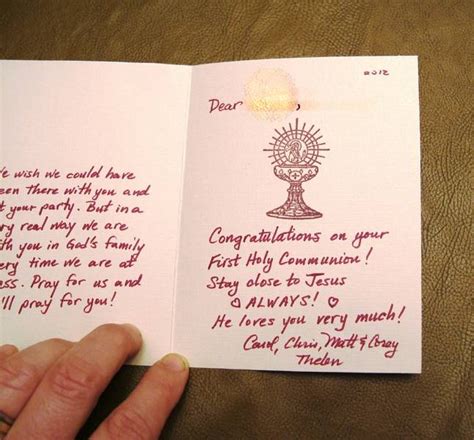 e wish we could have
een there with you and
t your party. But in a
ery real way we are
th you in God's family
very time we are at
ess. Pray for us and
'll pray for you!
2012
Dear ,
Congratulations on your
First Holy Communion!
Stay close to Jesus
♡ ALWAYS! ♡
He loves you very much!
Carol, Chris, Matt & Coray
Thelen